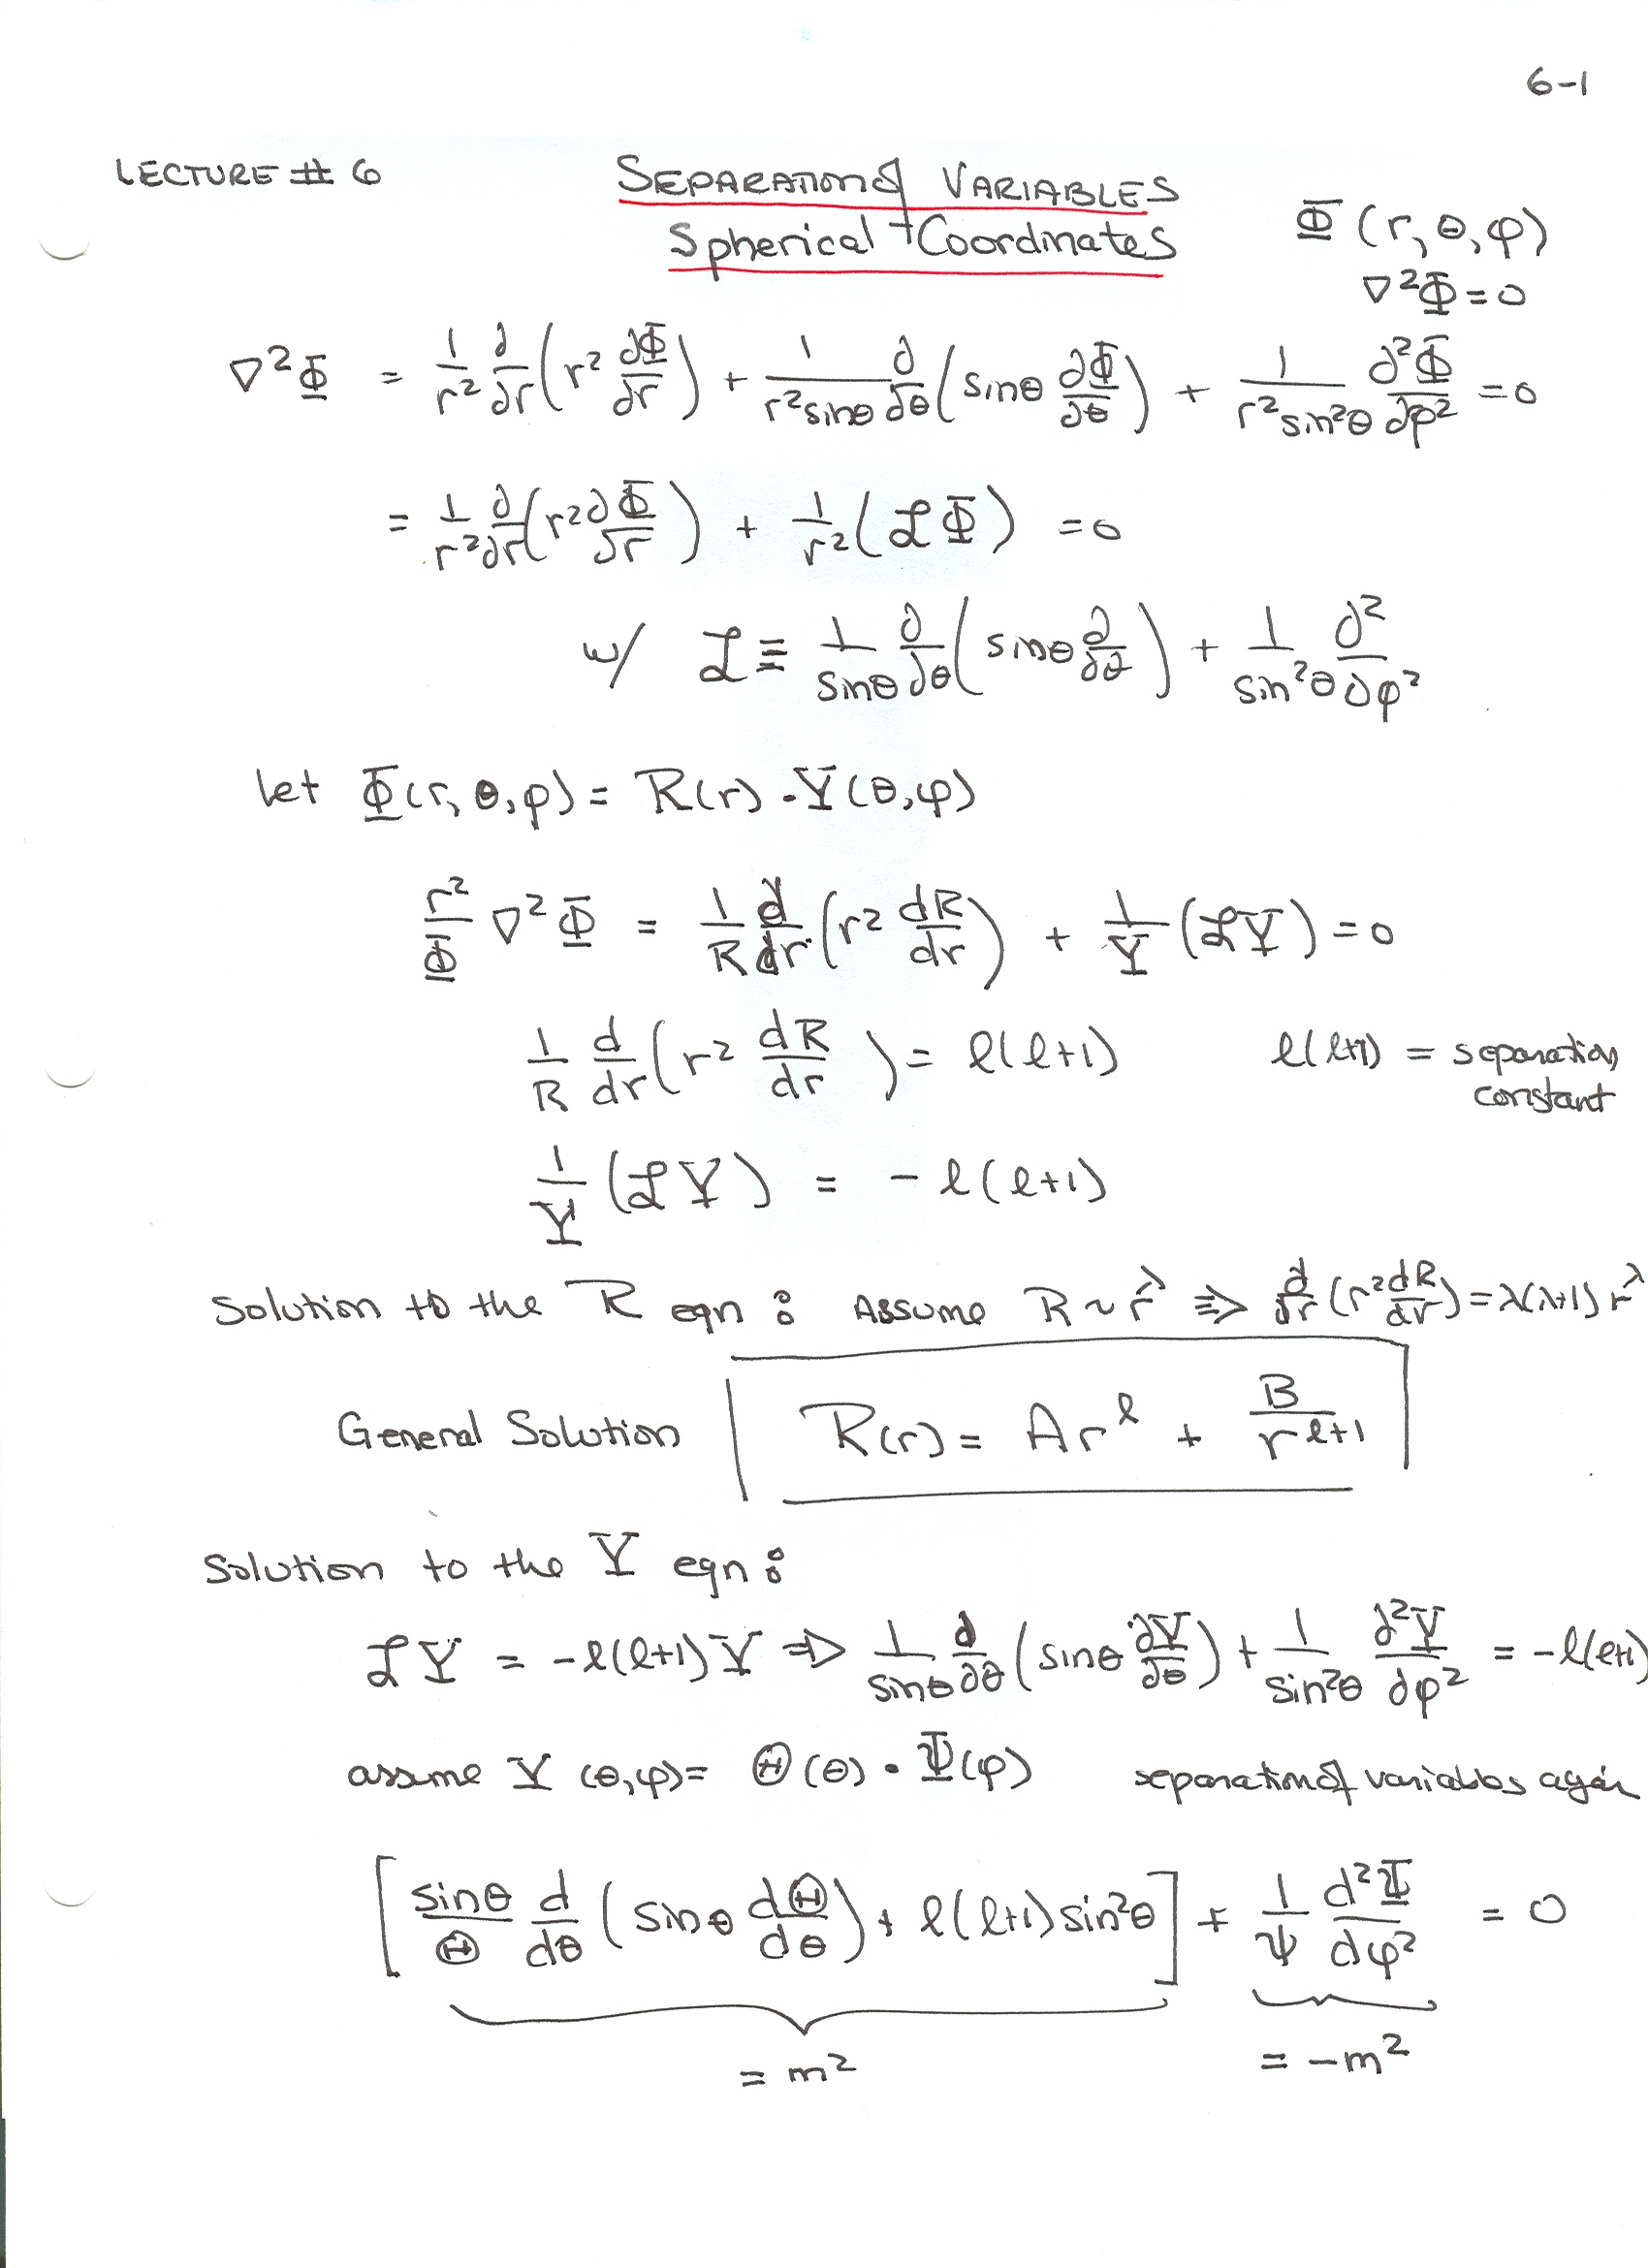 6-1
LECTURE # 6
SEPARATION of VARIABLES
Spherical Coordinates
Φ(r, θ, φ)
∇²Φ = 0
∇²Φ = 1/r² ∂/∂r (r² ∂Φ/∂r) + 1/(r² sinθ) ∂/∂θ (sinθ ∂Φ/∂θ) + 1/(r² sin²θ) ∂²Φ/∂φ² = 0
= 1/r² ∂/∂r (r² ∂Φ/∂r) + 1/r² (ℒΦ) = 0
w/ ℒ ≡ 1/sinθ ∂/∂θ (sinθ ∂/∂θ) + 1/sin²θ ∂²/∂φ²
let Φ(r, θ, φ) = R(r) · Y(θ, φ)
r²/Φ ∇²Φ = 1/R d/dr (r² dR/dr) + 1/Y (ℒY) = 0
1/R d/dr (r² dR/dr) = ℓ(ℓ+1)   ℓ(ℓ+1) = separation
constant
1/Y (ℒY) = - ℓ(ℓ+1)
Solution to the R eqn : Assume R ~ r^λ ⇒ d/dr (r² dR/dr) = λ(λ+1) r^λ
General Solution R(r) = Ar^ℓ + B/r^(ℓ+1)
Solution to the Y eqn :
ℒY = -ℓ(ℓ+1)Y ⇒ 1/sinθ ∂/∂θ (sinθ ∂Y/∂θ) + 1/sin²θ ∂²Y/∂φ² = -ℓ(ℓ+1)
assume Y(θ,φ) = Θ(θ) · Ψ(φ)   separation of variables again
[sinθ/Θ d/dθ (sinθ dΘ/dθ) + ℓ(ℓ+1) sin²θ] + 1/Ψ d²Ψ/dφ² = 0
= m²   = -m²